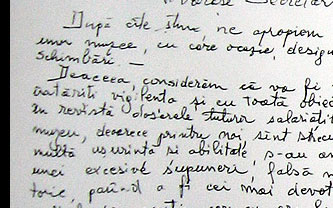 Tovarășe Secretar
După câte știu, ne apropiem
unor muzee, cu care ocazie, desigu
schimbări. —
Deaceea, considerăm că va fi
întăriți vigilența și cu toată obiec
în revistă dosarele tuturor salariațil
muzeu, deoarece printre noi sînt
multă ușurință și abilitate, s-au
unei excesive supuneri, falsă
toric, părând a fi cei mai devot